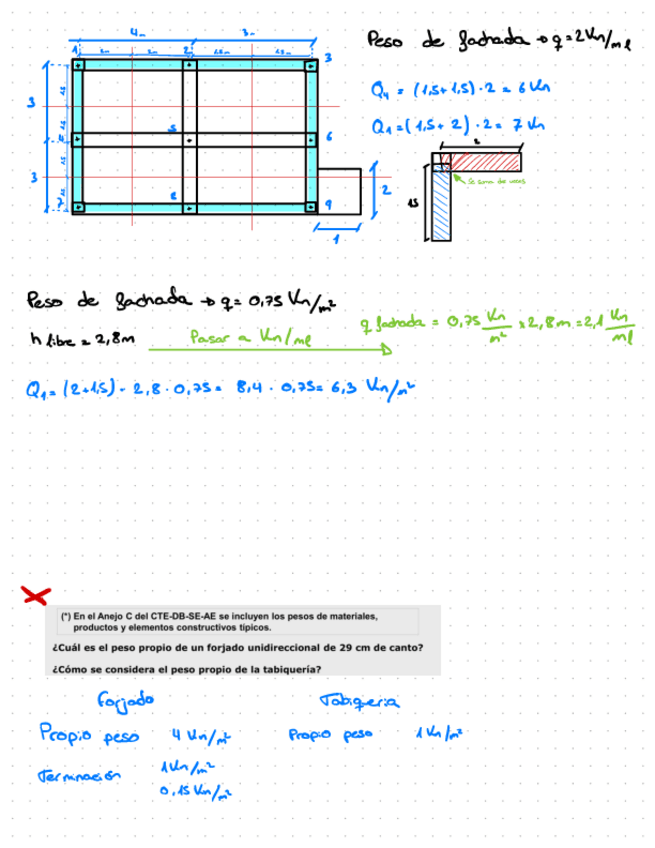 4m 3m
1 2m 2m 2 1,5m 1,5m 3
Peso de fachada → q=2Kn/ml
Q4 = (1,5+1,5)·2 = 6 Kn
Q1=(1,5+2)·2= 7 Kn
3 1,5
1,5
5 6
3 1,5
2
7 8 9
1
2
1,5
Se suma dos veces
Peso de fachada → q= 0,75 Kn/m²
h libre = 2,8m
Pasar a Kn/ml
q fachada = 0,75 Kn/m² x 2,8m = 2,1 Kn/ml
Q1= (2+1,5) · 2,8 · 0,75 = 8,4 · 0,75= 6,3 Kn/m²
(*) En el Anejo C del CTE-DB-SE-AE se incluyen los pesos de materiales,
productos y elementos constructivos típicos.
¿Cuál es el peso propio de un forjado unidireccional de 29 cm de canto?
¿Cómo se considera el peso propio de la tabiquería?
Forjado Tabiqueria
Propio peso 4 Kn/m² Propio peso 1 Kn/m²
Terminación 1Kn/m²
0,15 Kn/m²